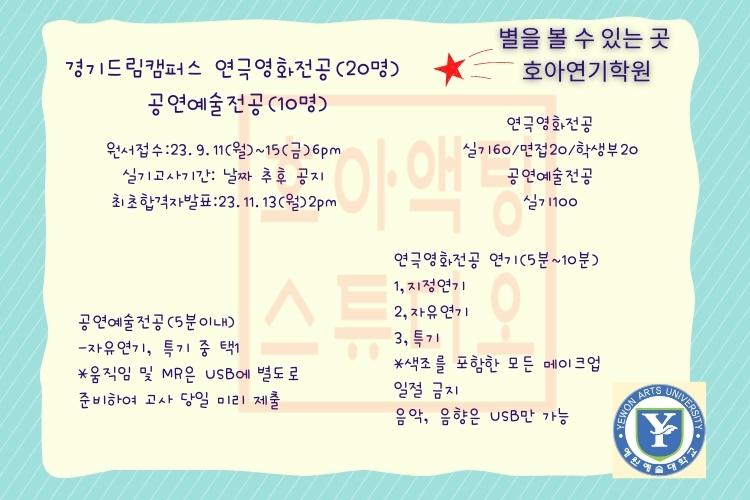 별을 볼 수 있는 곳
호아연기학원
경기드림캠퍼스 연극영화전공(20명)
공연예술전공(10명)
원서접수:23.9.11(월)~15(금)6pm
실기고사기간: 날짜 추후 공지
최초합격자발표:23.11.13(월)2pm
연극영화전공
실기60/면접20/학생부20
공연예술전공
실기100
연극영화전공 연기(5분~10분)
1,지정연기
2,자유연기
3,특기
*색조를 포함한 모든 메이크업
일절 금지
음악, 음향은 USB만 가능
공연예술전공(5분이내)
-자유연기, 특기 중 택1
*움직임 및 MR은 USB에 별도로
준비하여 고사 당일 미리 제출
호아액팅
스튜디오
YEWON ARTS UNIVERSITY
예원예술대학교